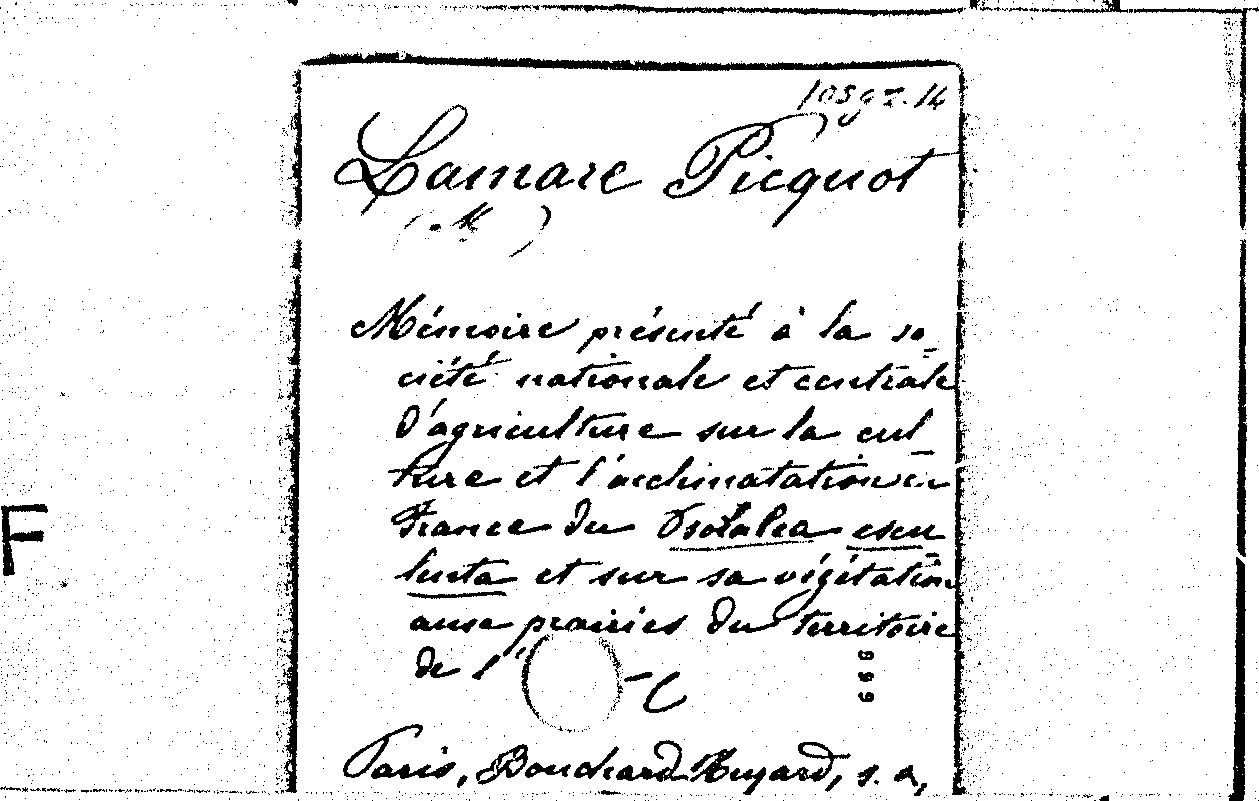 Lamare Picquot
(M )
Mémoire présenté à la so-
ciété nationale et centrale
d'agriculture sur la cul-
ture et l'acclimatation en
France du Psoralea escu-
lenta et sur sa végétation
aux prairies du territoire
de l'
F
999
Paris, Bouchard-Huzard, s. a.,